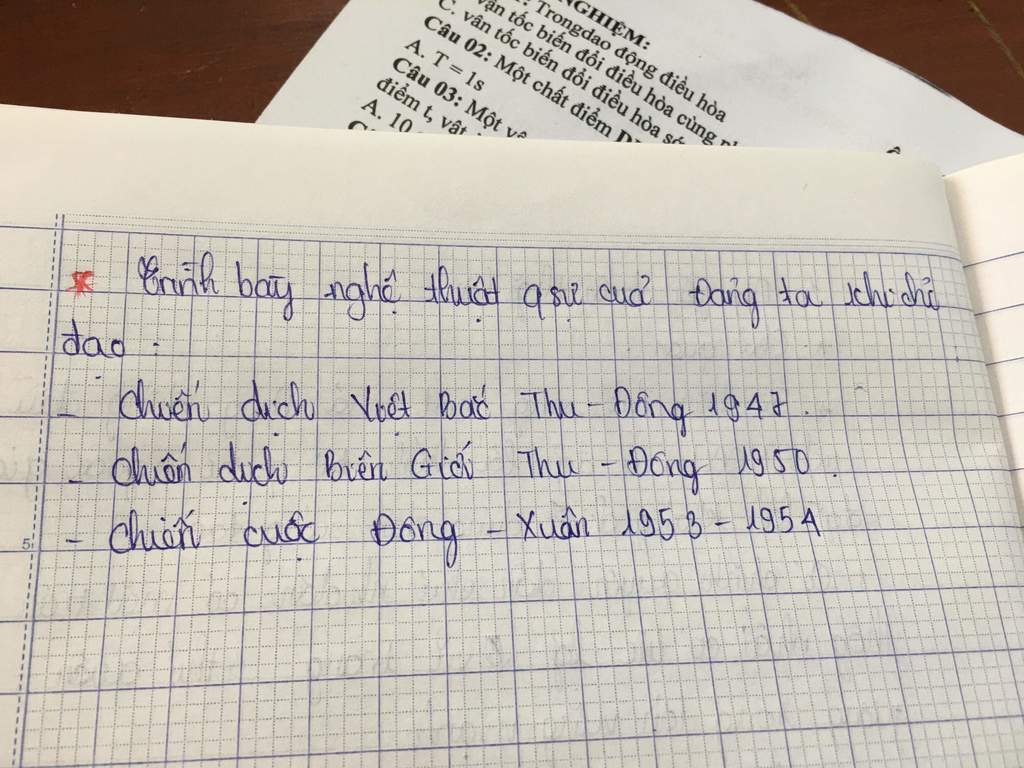 NGHIỆM:
Trongdao động điều hòa
vận tốc biến đổi điều hòa cùng
C. vân tốc biến đổi điều hòa
Câu 02: Một chất điểm
A. T = 1s
Câu 03: Một
điểm t, vật
A. 10
* Trình bày nghệ thuật qsự của Đảng ta khi chỉ
đạo :
- Chiến dịch Việt Bắc Thu - Đông 1947.
- Chiến dịch Biên Giới Thu - Đông 1950.
5 - Chiến cuộc Đông - Xuân 1953 - 1954